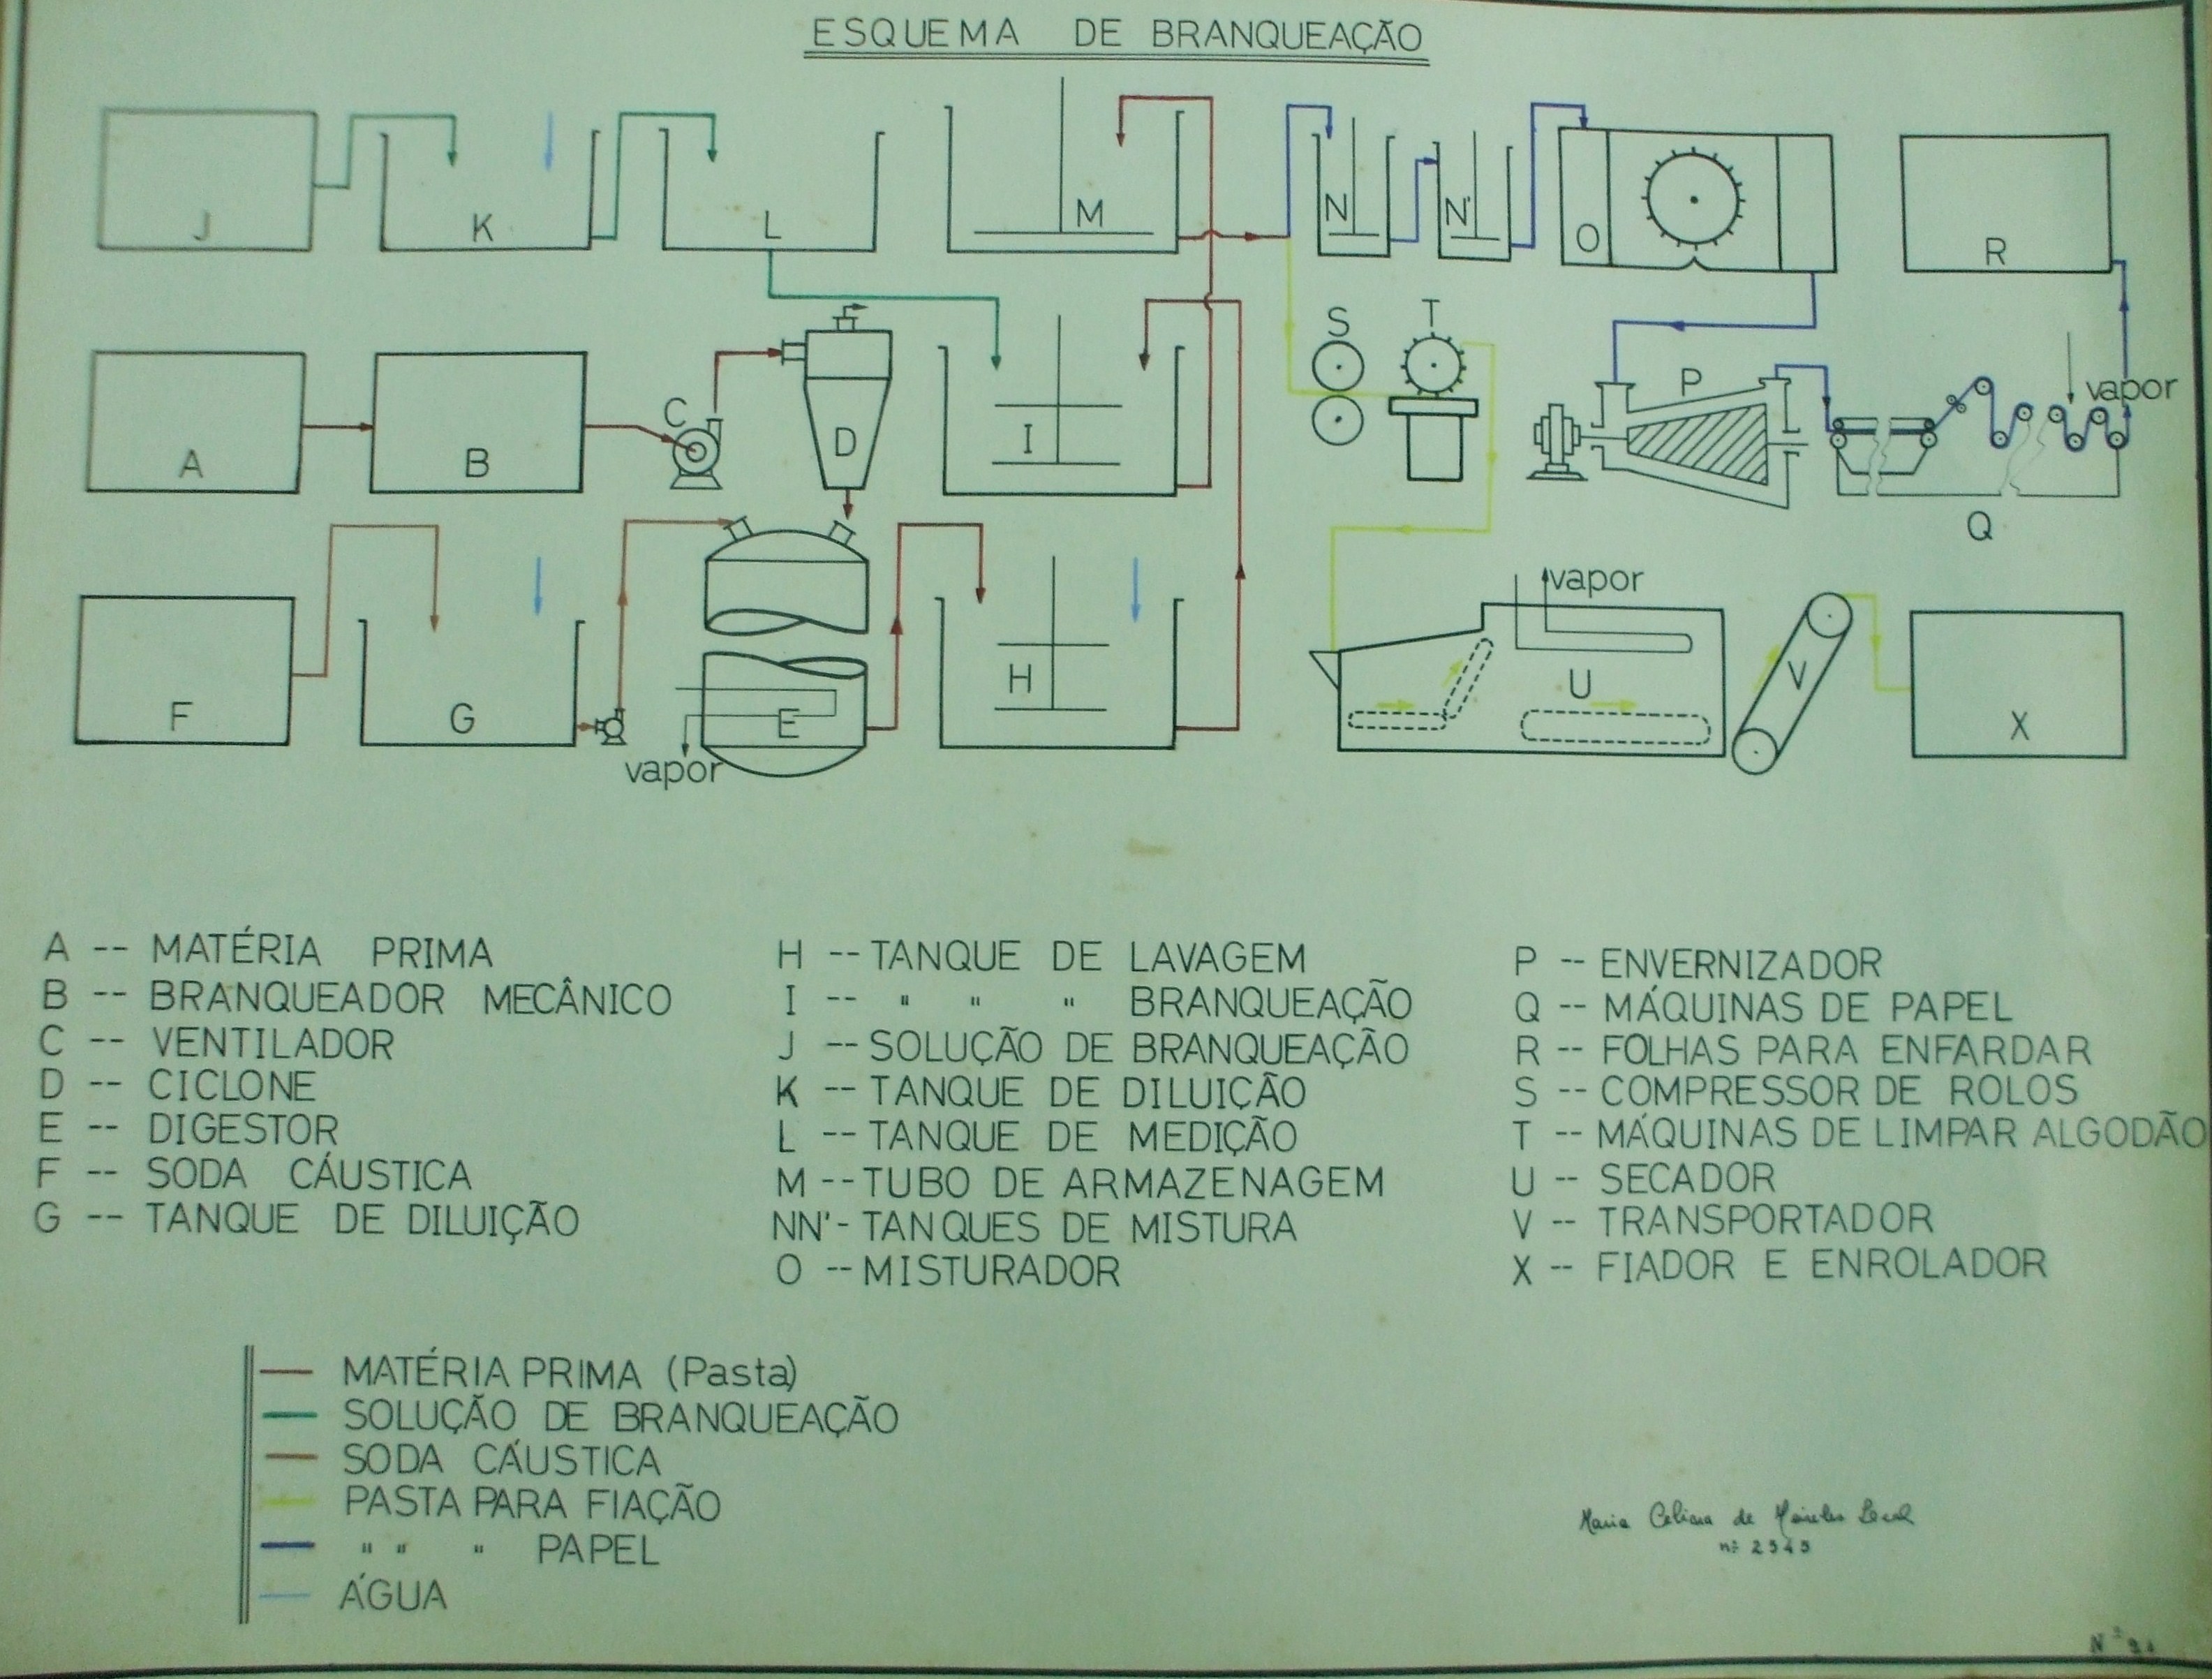 ESQUEMA DE BRANQUEAÇÃO
J
K
L
M
N
N'
O
R
A
B
C
D
I
S
T
P
vapor
Q
F
G
E
vapor
H
vapor
U
V
X
A -- MATÉRIA PRIMA
B -- BRANQUEADOR MECÂNICO
C -- VENTILADOR
D -- CICLONE
E -- DIGESTOR
F -- SODA CÁUSTICA
G -- TANQUE DE DILUIÇÃO
H -- TANQUE DE LAVAGEM
I -- " " " BRANQUEAÇÃO
J -- SOLUÇÃO DE BRANQUEAÇÃO
K -- TANQUE DE DILUIÇÃO
L -- TANQUE DE MEDIÇÃO
M -- TUBO DE ARMAZENAGEM
NN' - TANQUES DE MISTURA
O -- MISTURADOR
P -- ENVERNIZADOR
Q -- MÁQUINAS DE PAPEL
R -- FOLHAS PARA ENFARDAR
S -- COMPRESSOR DE ROLOS
T -- MÁQUINAS DE LIMPAR ALGODÃO
U -- SECADOR
V -- TRANSPORTADOR
X -- FIADOR E ENROLADOR
MATÉRIA PRIMA (Pasta)
SOLUÇÃO DE BRANQUEAÇÃO
SODA CÁUSTICA
PASTA PARA FIAÇÃO
" " " PAPEL
ÁGUA
Maria de